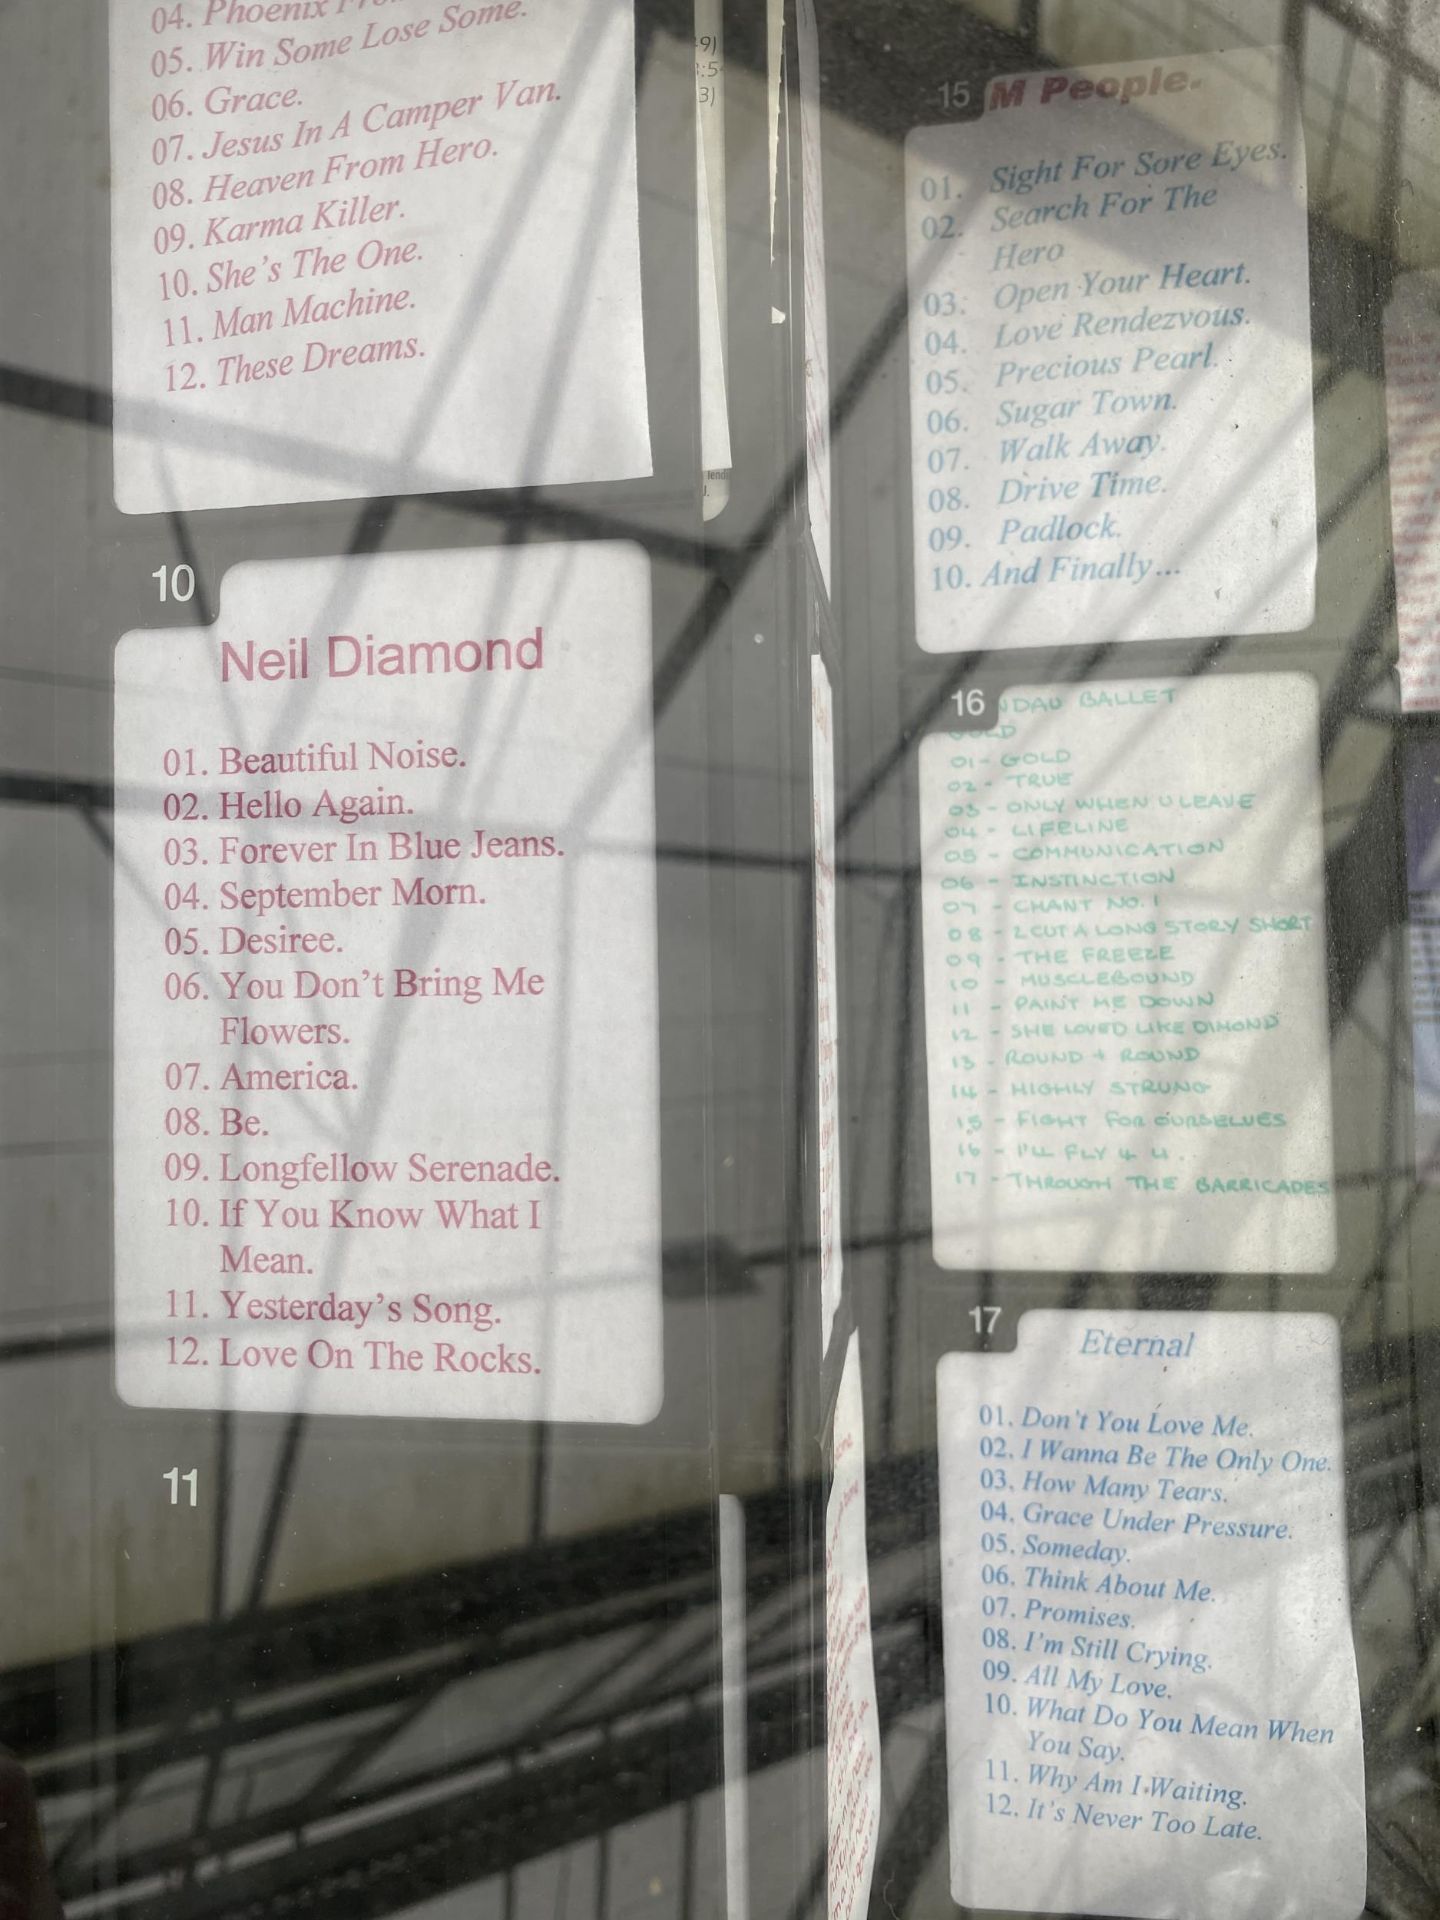 04. Phoenix
05. Win Some Lose Some.
06. Grace.
07. Jesus In A Camper Van.
08. Heaven From Hero.
09. Karma Killer.
10. She's The One.
11. Man Machine.
12. These Dreams.
10
Neil Diamond
01. Beautiful Noise.
02. Hello Again.
03. Forever In Blue Jeans.
04. September Morn.
05. Desiree.
06. You Don't Bring Me
Flowers.
07. America.
08. Be.
09. Longfellow Serenade.
10. If You Know What I
Mean.
11. Yesterday's Song.
12. Love On The Rocks.
11
15 M People.
01. Sight For Sore Eyes.
02. Search For The
Hero
03. Open Your Heart.
04. Love Rendezvous.
05. Precious Pearl.
06. Sugar Town.
07. Walk Away.
08. Drive Time.
09. Padlock.
10. And Finally...
16 NDAU BALLET
GOLD
01 - GOLD
02 - TRUE
03 - ONLY WHEN U LEAVE
04 - LIFELINE
05 - COMMUNICATION
06 - INSTINCTION
07 - CHANT NO. 1
08 - 2 CUT A LONG STORY SHORT
09 - THE FREEZE
10 - MUSCLEBOUND
11 - PAINT ME DOWN
12 - SHE LOVED LIKE DIMOND
13 - ROUND + ROUND
14 - HIGHLY STRUNG
15 - FIGHT FOR OURSELVES
16 - I'LL FLY 4 U.
17 - THROUGH THE BARRICADES
17
Eternal
01. Don't You Love Me.
02. I Wanna Be The Only One.
03. How Many Tears.
04. Grace Under Pressure.
05. Someday.
06. Think About Me.
07. Promises.
08. I'm Still Crying.
09. All My Love.
10. What Do You Mean When
You Say.
11. Why Am I Waiting.
12. It's Never Too Late.